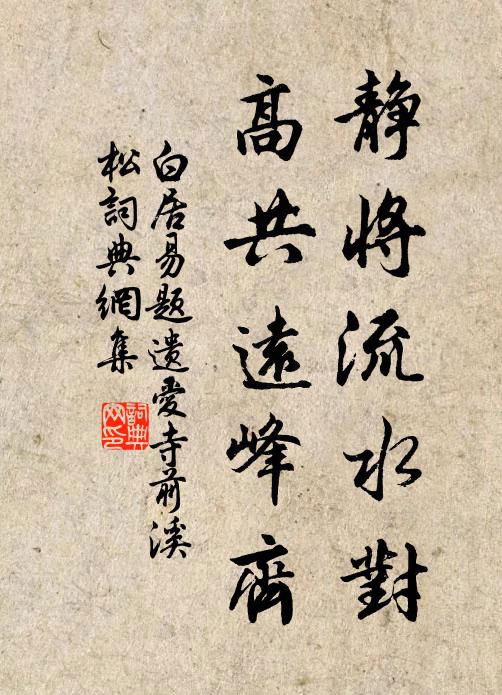 静將流水對
高共遠峰齊
白居易題遺愛寺前溪
松詞典網集
詞典
网印